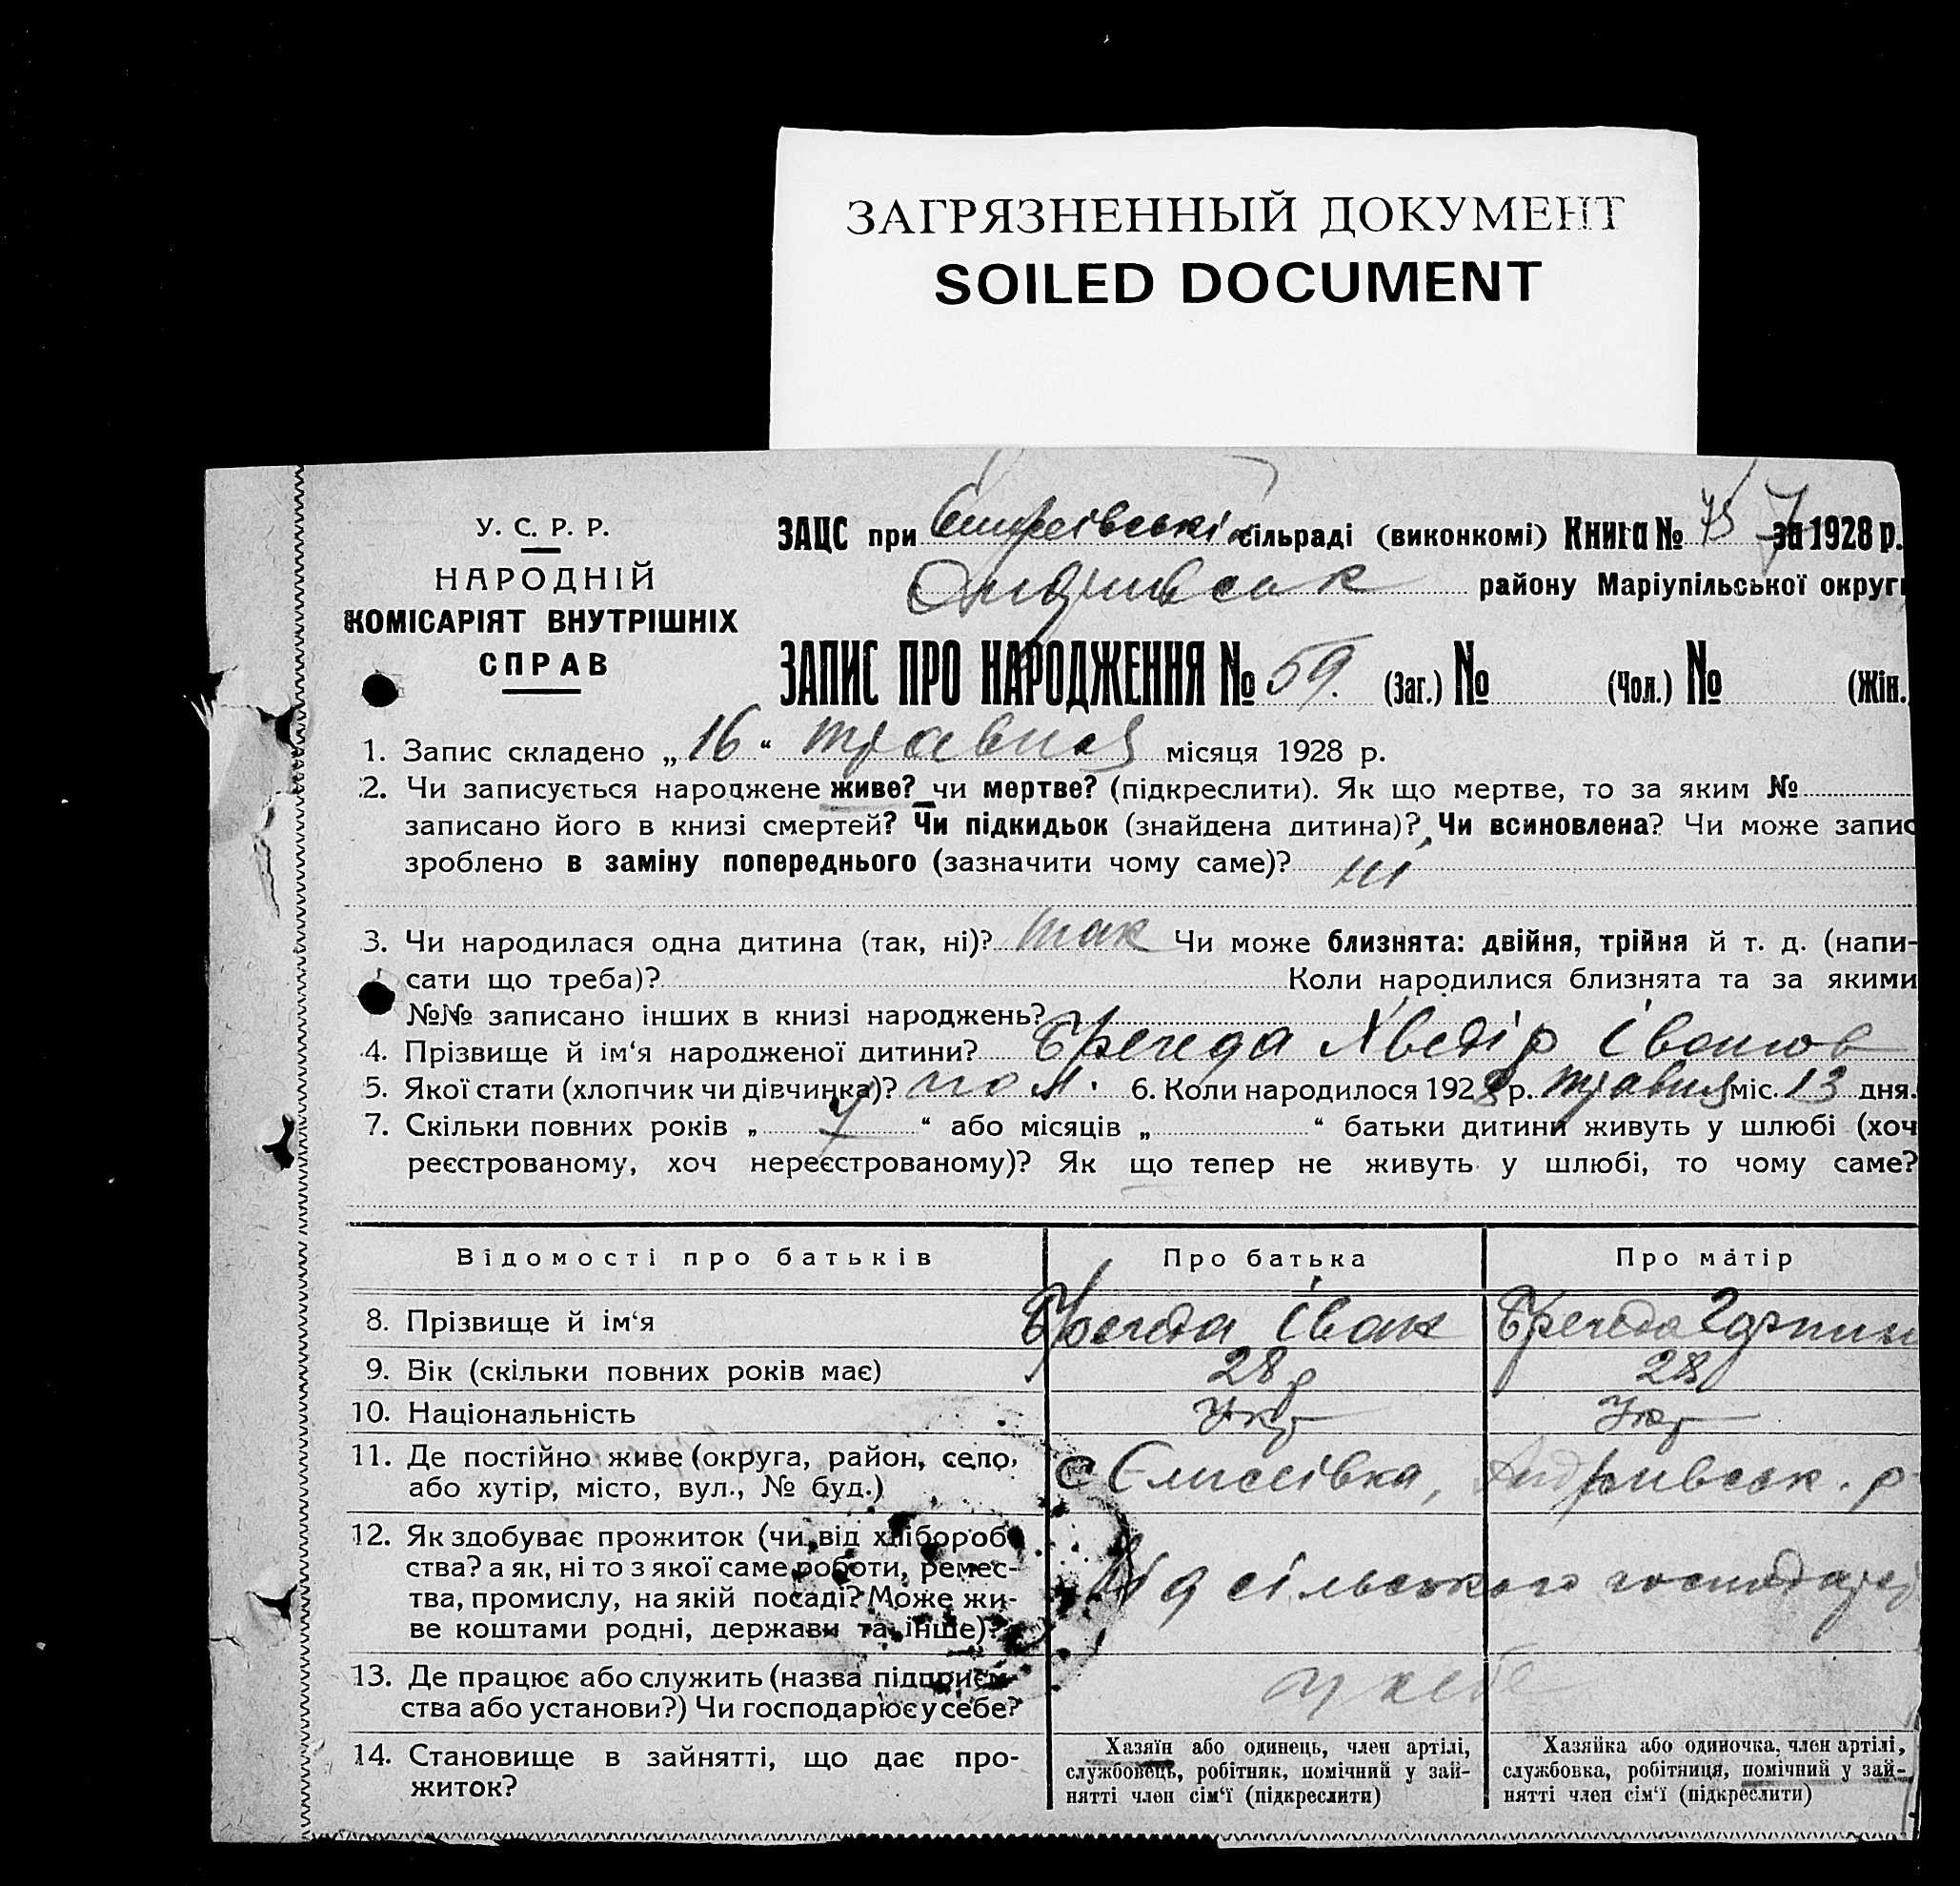 ЗАГРЯЗНЕННЫЙ ДОКУМЕНТ
SOILED DOCUMENT
У. С. Р. Р.
НАРОДНІЙ
КОМІСАРІЯТ ВНУТРІШНІХ
СПРАВ
ЗАЦС при сільраді (виконкомі) Книга № за 1928 р.
району Маріупільської округи
ЗАПИС ПРО НАРОДЖЕННЯ № 59. (Заг.) № (Чол.) № (Жін.
1. Запис складено „ 16 “ травня місяця 1928 р.
2. Чи записується народжене живе? чи мертве? (підкреслити). Як що мертве, то за яким №
записано його в книзі смертей? Чи підкидьок (знайдена дитина)? Чи всиновлена? Чи може запис
зроблено в заміну попереднього (зазначити чому саме)? ні
3. Чи народилася одна дитина (так, ні)? так Чи може близнята: двійня, трійня й т. д. (напи-
сати що треба)? Коли народилися близнята та за якими
№№ записано інших в книзі народжень?
4. Прізвище й ім‘я народженої дитини? Хведір Іванов
5. Якої стати (хлопчик чи дівчинка)? чол. 6. Коли народилося 1928 р. травня міс. 13 дня.
7. Скільки повних років „ “ або місяців „ “ батьки дитини живуть у шлюбі (хоч
реєстрованому, хоч нереєстрованому)? Як що тепер не живуть у шлюбі, то чому саме?
Відомості про батьків Про батька Про матір
8. Прізвище й ім‘я Іван
9. Вік (скільки повних років має) 28 р 28
10. Національність Укр Укр
11. Де постійно живе (округа, район, село, або хутір, місто, вул., № буд.) с Єлисеївка, Андрiивськ. р
12. Як здобуває прожиток (чи від хлібороб-
ства? а як, ні то з якої саме роботи, ремес-
тва, промислу, на якій посаді? Може жи-
ве коштами родні, держави та інше)? Від сільського господар
13. Де працює або служить (назва підприєм-
ства або установи?) Чи господарює у себе? у себе
14. Становище в зайнятті, що дає про-
житок?
Хазяїн або одинець, член артілі,
службовець, робітник, помічний у зай-
нятті член сім‘ї (підкреслити)
Хазяйка або одиночка, член артілі,
службовка, робітниця, помічний у зай-
нятті член сім‘ї (підкреслити)